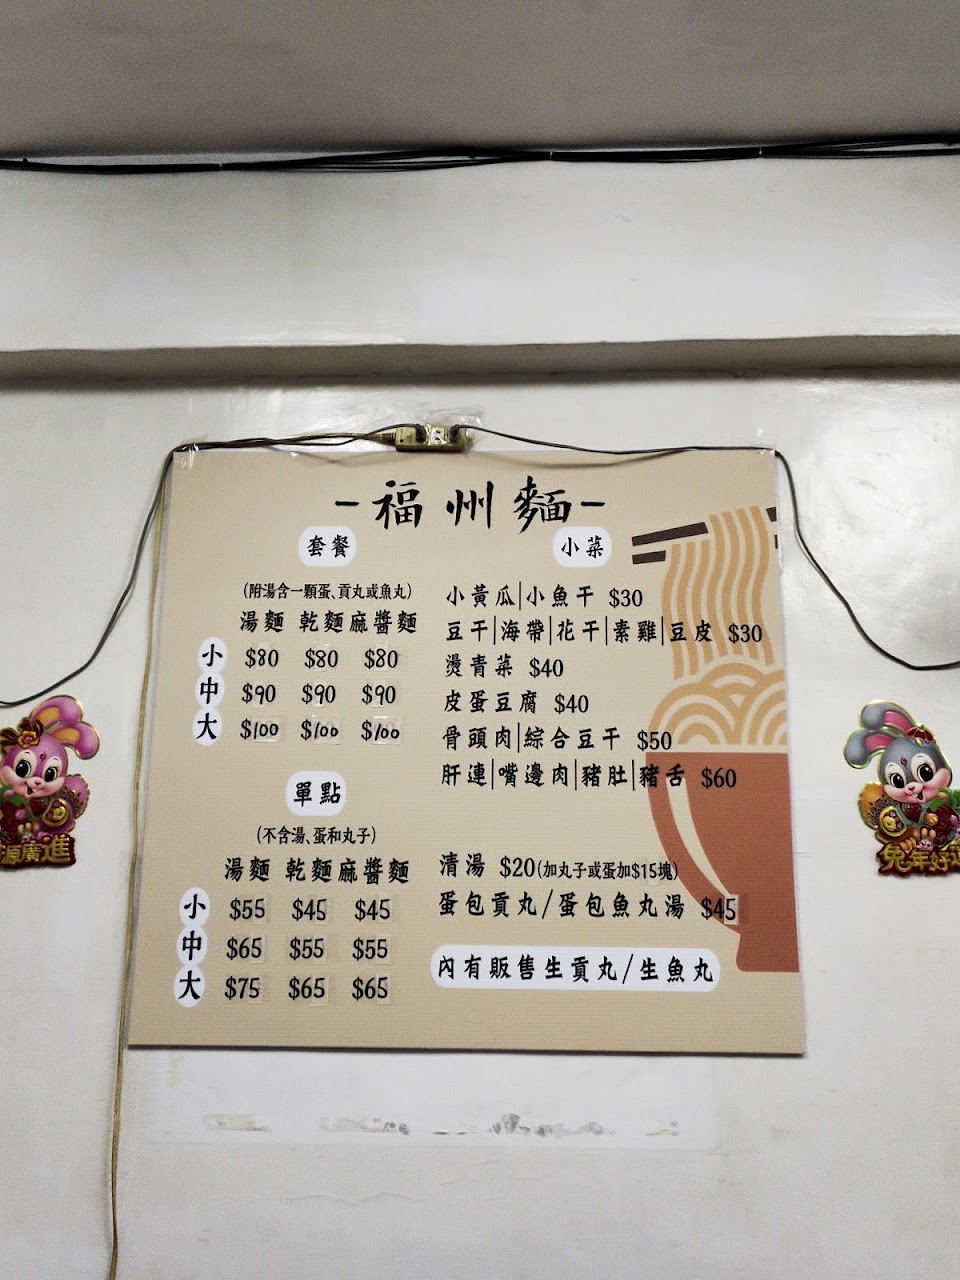 -福州麵-
套餐
(附湯含一顆蛋、貢丸或魚丸)
湯麵 乾麵 麻醬麵
小 $80 $80 $80
中 $90 $90 $90
大 $100 $100 $100
單點
(不含湯、蛋和丸子)
湯麵 乾麵 麻醬麵
小 $55 $45 $45
中 $65 $55 $55
大 $75 $65 $65
小菜
小黃瓜|小魚干 $30
豆干|海帶|花干|素雞|豆皮 $30
燙青菜 $40
皮蛋豆腐 $40
骨頭肉|綜合豆干 $50
肝連|嘴邊肉|豬肚|豬舌 $60
清湯 $20(加丸子或蛋加$15塊)
蛋包貢丸/蛋包魚丸湯 $45
內有販售生貢丸/生魚丸
源廣進
兔年好